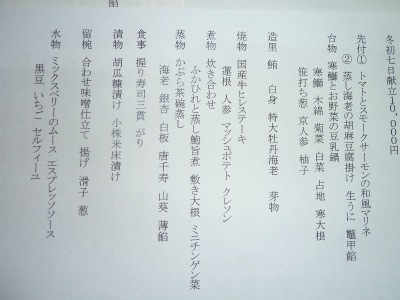 冬初七日献立10,000円
先付① トマトとスモークサーモンの和風マリネ
② 蒸し海老の胡麻豆腐掛け 生うに 鼈甲餡
台物 寒鰤とお野菜の豆乳鍋
寒鰤 木綿 菊菜 白菜 占地 寒大根
笹打ち葱 京人参 柚子
造里 鮪 白身 特大牡丹海老 芽物
焼物 国産牛ヒレステーキ
蓮根 人参 マッシュポテト クレソン
煮物 炊き合わせ
ふかひれと蒸し鮑旨煮 敷き大根 ミニチンゲン菜
蒸物 かぶら茶碗蒸し
海老 銀杏 白板 唐千寿 山葵 薄餡
食事 握り寿司三貫 がり
漬物 胡瓜糠漬け 小株米床漬け
留椀 合わせ味噌仕立て 揚げ 滑子 葱
水物 ミックスベリーのムース エスプレッソソース
黒豆 いちご セルフィーユ